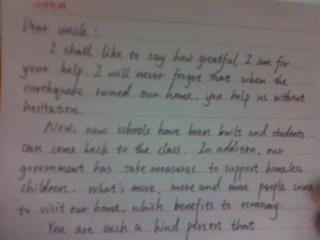 Dear uncle:
I shall like to say how greatful I am for
your help. I will never forget that when the
earthquake ruined our home, you help us without
hesitation.
Now, new schools have been built and students
can come back to the class. In addition, our
government has take measures to support homeless
children. What's more, more and more people come
to visit our home, which benefits to economy.
You are such a kind person that